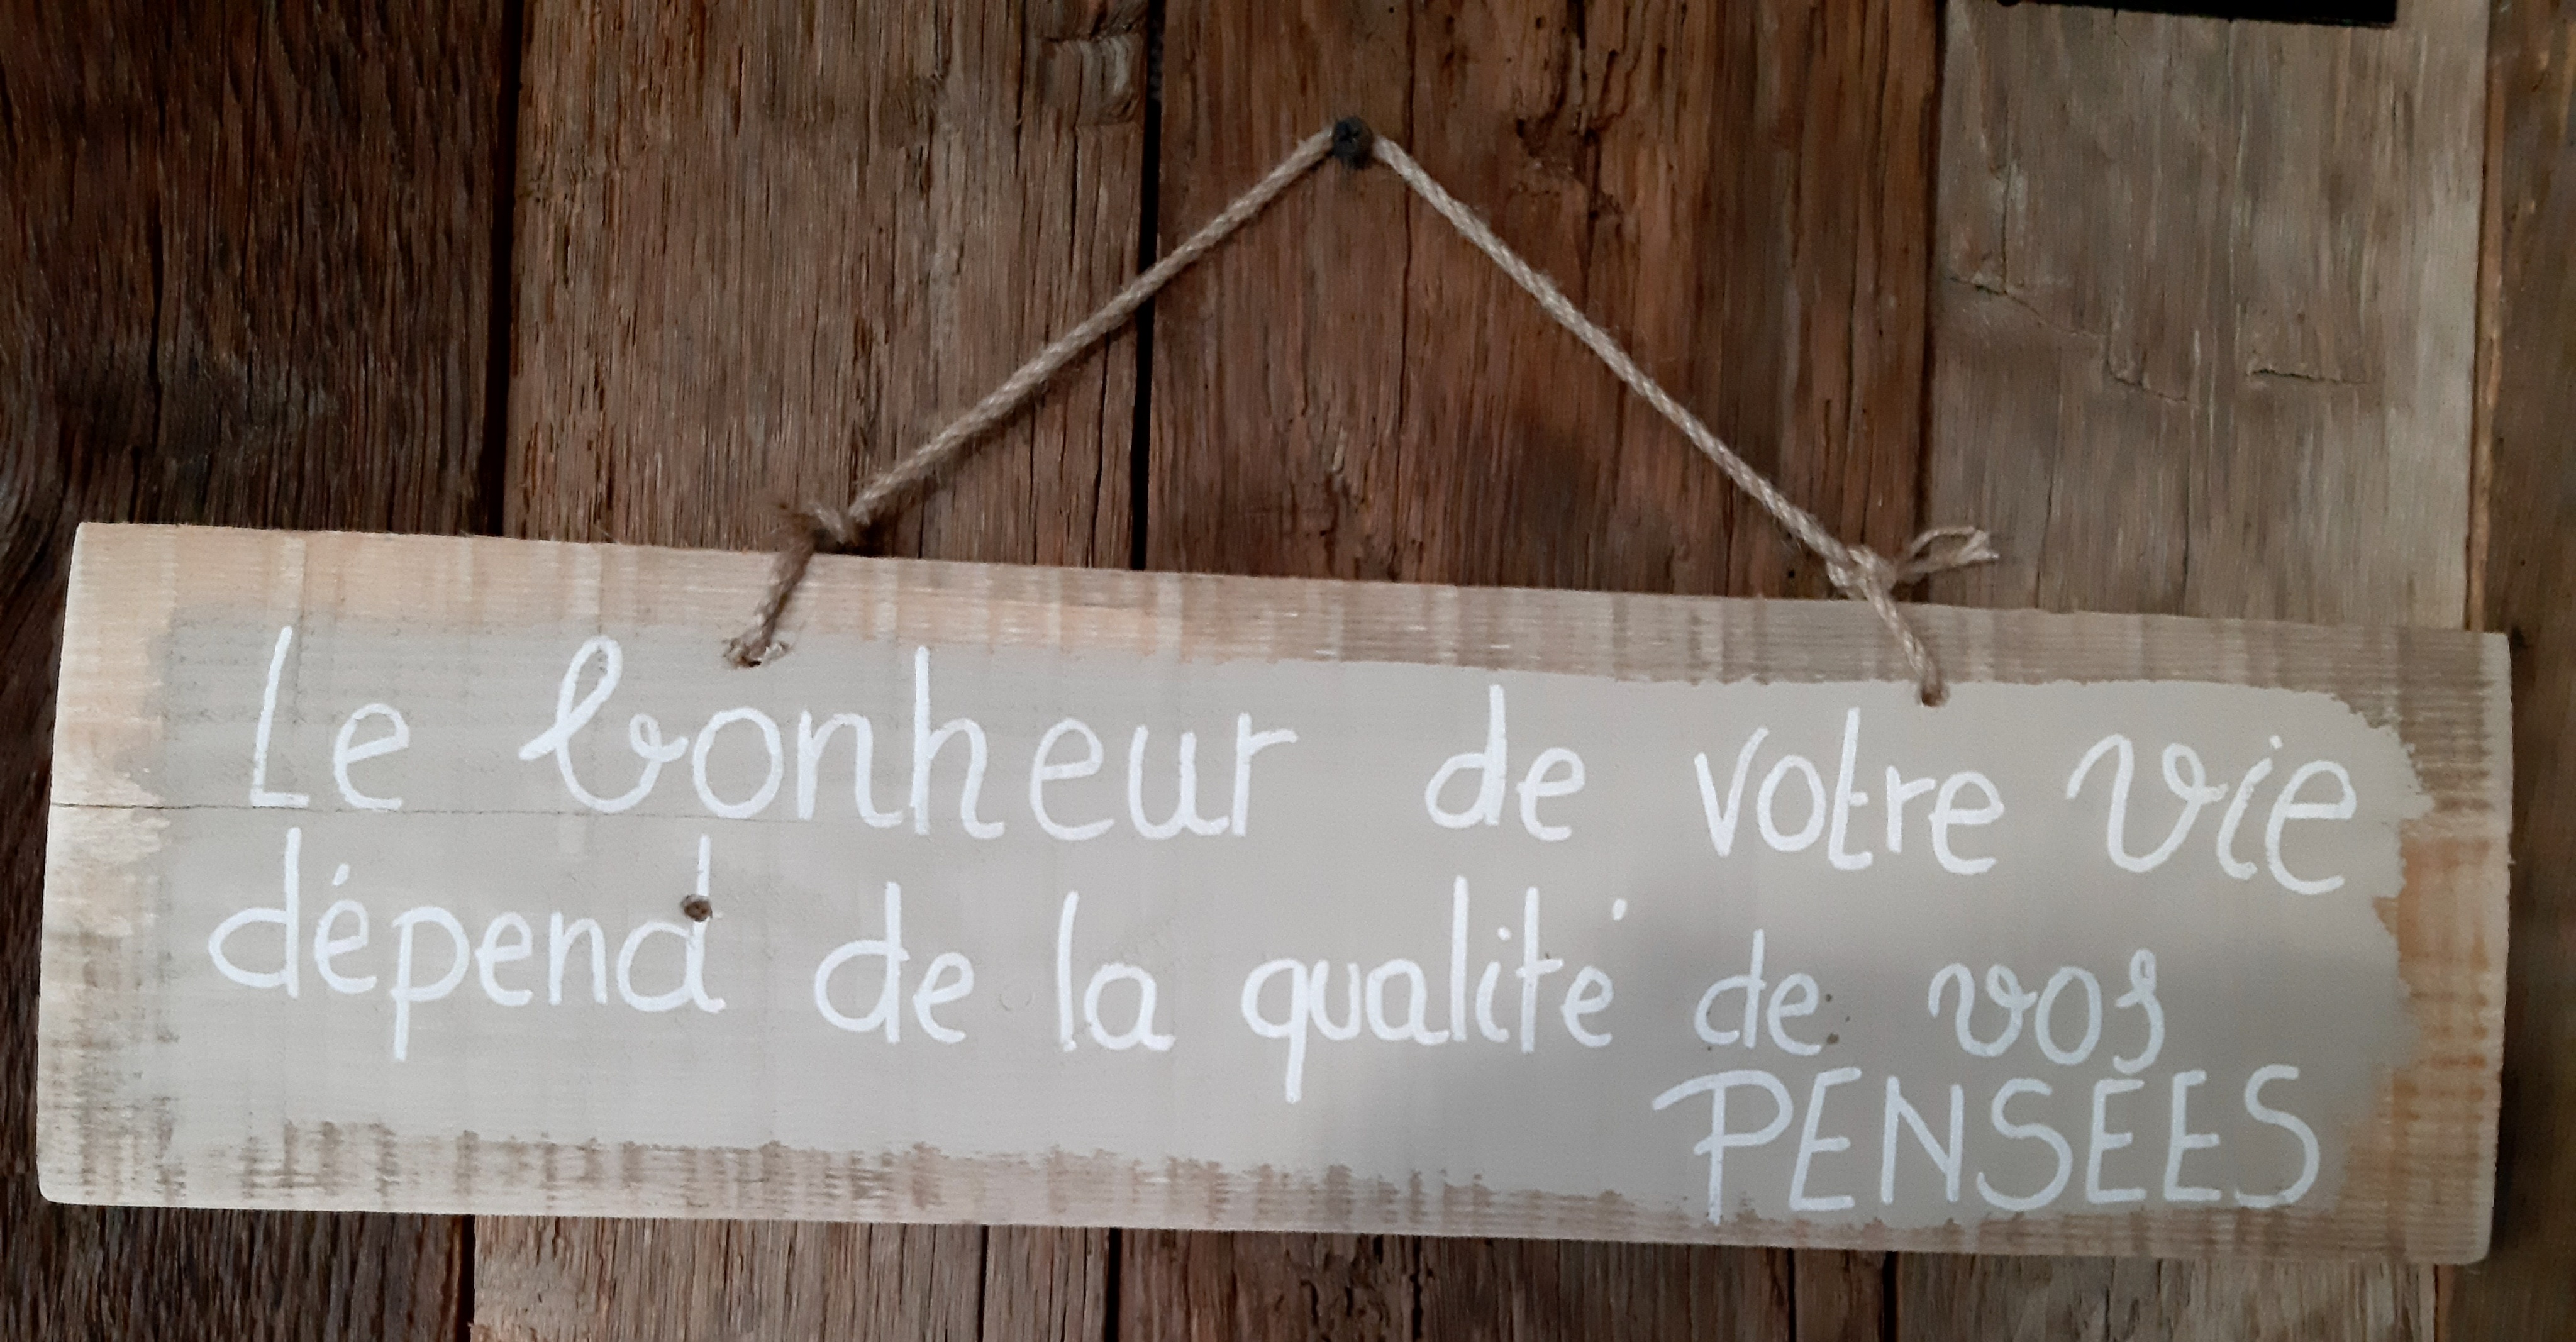 Le bonheur de votre vie
dépend de la qualité de vos
PENSÉES